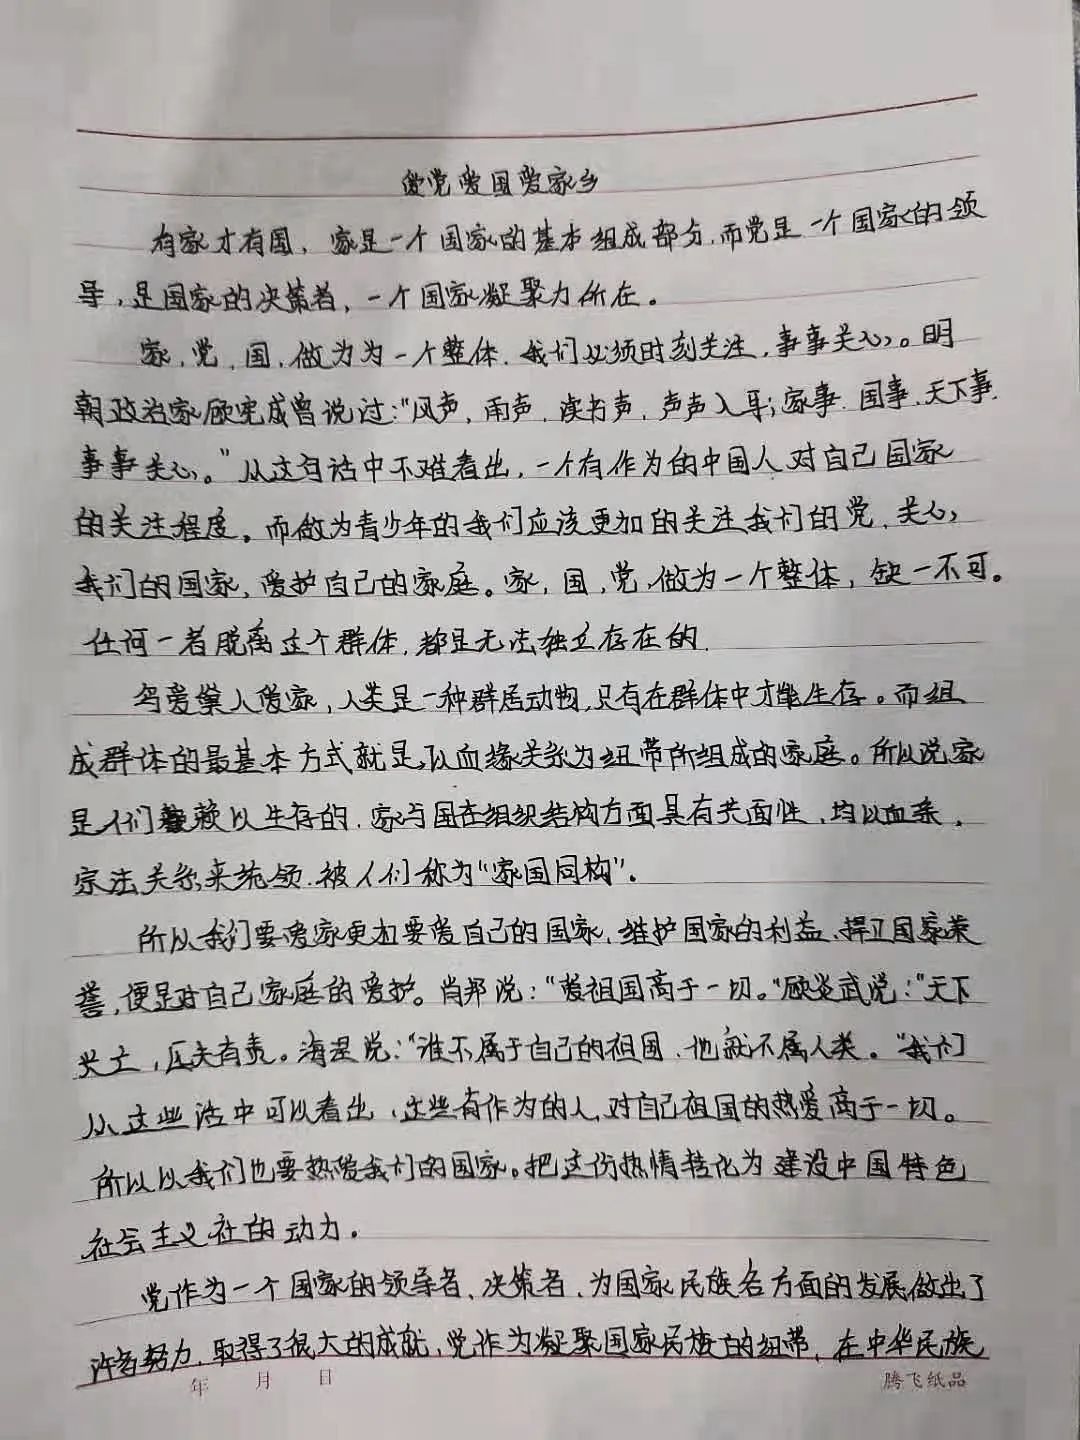 爱党爱国爱家乡
有家才有国，家是一个国家的基本组成部分，而党是一个国家的领
导，是国家的决策者，一个国家凝聚力所在。
家，党，国，做为为一个整体，我们必须时刻关注，事事关心。明
朝政治家顾宪成曾说过："风声，雨声，读书声，声声入耳；家事，国事，天下事，
事事关心。"从这句话中不难看出，一个有作为的中国人对自己国家
的关注程度。而做为青少年的我们应该更加的关注我们的党，关心
我们的国家，爱护自己的家庭。家，国，党，做为一个整体，缺一不可。
任何一者脱离这个群体，都是无法独立存在的．
爱家，人类是一种群居动物，只有在群体中才能生存。而组
成群体的最基本方式就是，以血缘关系为纽带所组成的家庭。所以说家
是人们赖以生存的，家与国在组织结构方面具有共面性，均以血亲，
宗法关系来统领，被人们称为"家国同构"．
所以我们要爱家更加要爱自己的国家，维护国家的利益，捍卫国家荣
誉，便是对自己家庭的爱护。肖邦说："爱祖国高于一切。"顾炎武说："天下
兴亡，匹夫有责。海涅说："谁不属于自己的祖国，他就不属人类。"我们
从这些话中可以看出，这些有作为的人，对自己祖国的热爱高于一切。
所以以我们也要热爱我们的国家。把这份热情转化为建设中国特色
社会主义社的动力．
党作为一个国家的领导者，决策者，为国家民族各方面的发展做出了
许多努力，取得了很大的成就，党作为凝聚国家民族的纽带，在中华民族
年 月 日 腾飞纸品